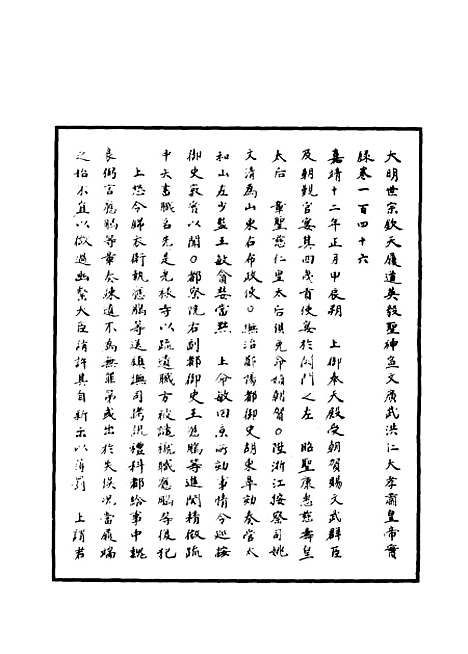 大明世宗欽天履道英毅聖神宣文廣武洪仁大孝肅皇帝實
錄卷一百四十六
嘉靖十二年正月甲辰朔　上御奉天殿受朝賀賜文武群臣
及朝覲官宴其四夷首使宴於闕門之左　昭聖康惠慈壽皇
太后　章聖慈仁皇太后俱免命婦朝賀○陞浙江按察司姚
文清為山東右布政使○撫治鄖陽都御史胡東皋劾奏太
和山左少監王敏貪婪當黜　上命敏回京所劾事情令巡按
御史覈實以聞○都察院右副都御史王應鵬等進閱精微疏
中失書職名先是光祿寺以疏遺職方被譴褫職應鵬等復犯
上怒令錦衣衛執應鵬等送鎮撫司拷訊禮科都給事中魏
良弼言應鵬等章奏疎遺不為無罪第或出於失悞況當履端
之始不宜以微過幽繫大臣請許其自新示以薄罰　上謂君